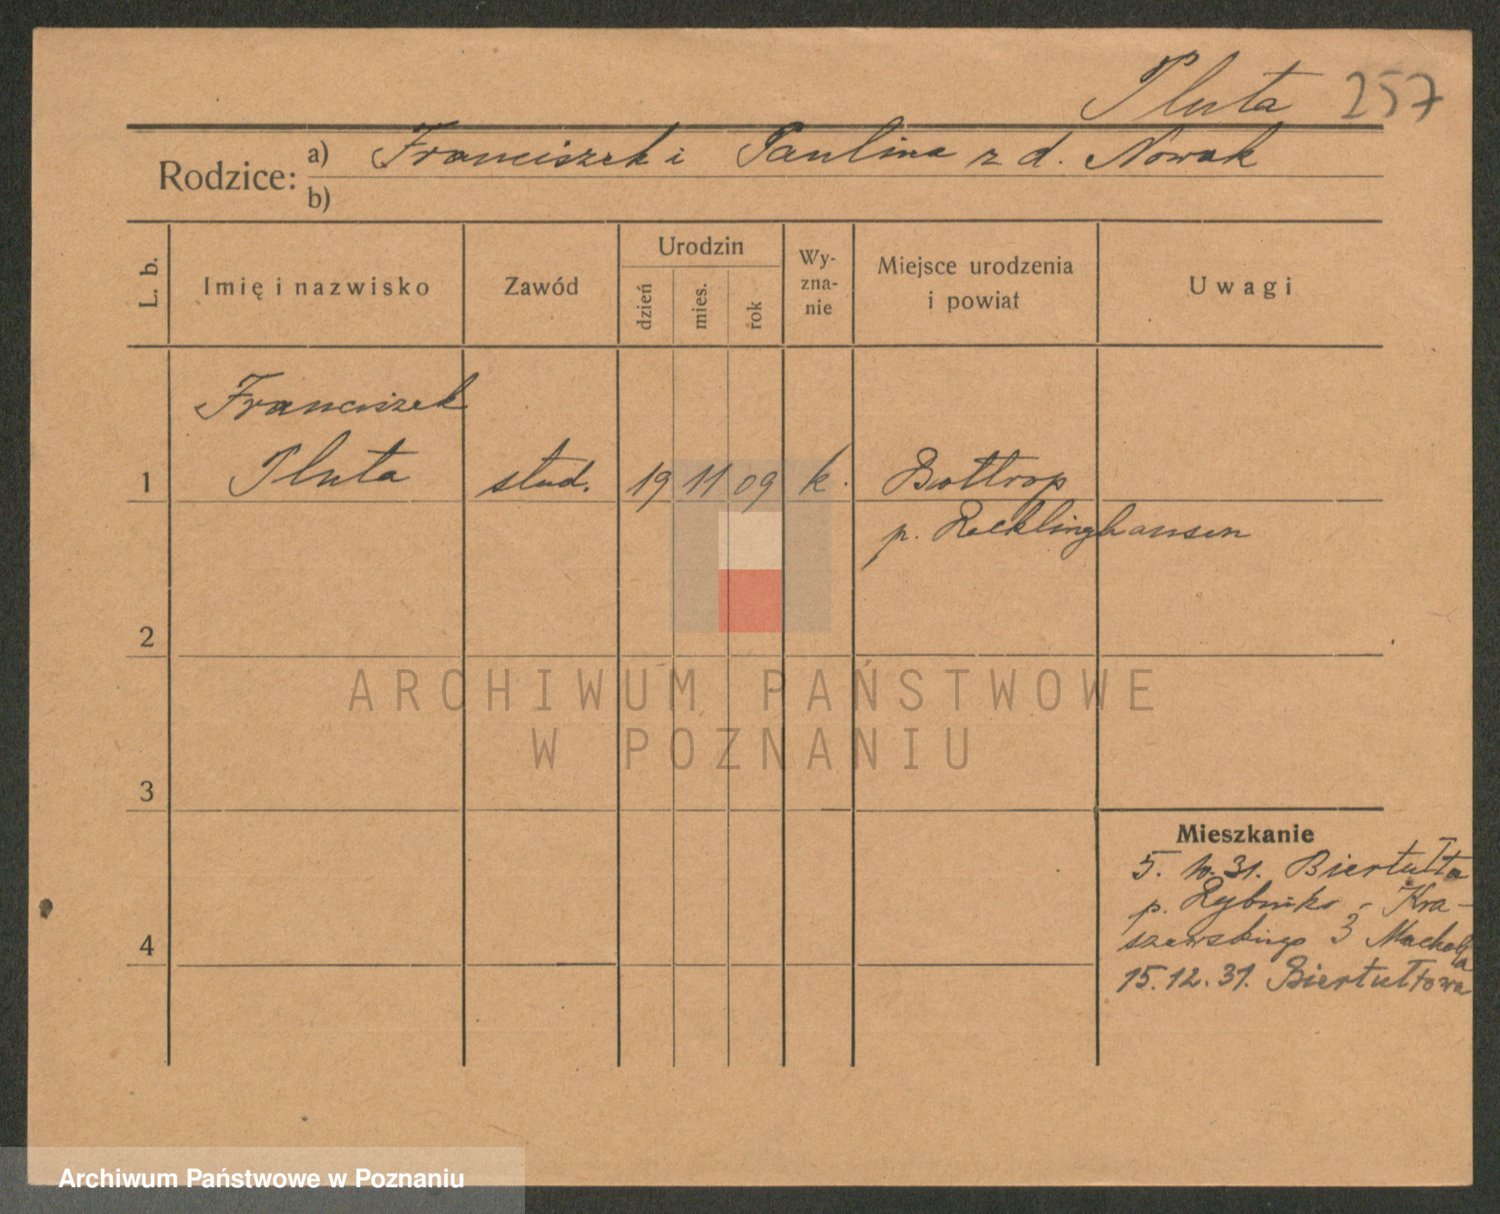 Pluta 257
Rodzice: a) Franciszek i Paulina z d. Nowak
b)
L. b.
Imię i nazwisko
Zawód
Urodzin
dzień
mies.
rok
Wy-
zna-
nie
Miejsce urodzenia
i powiat
Uwagi
Franciszek
1 Pluta stud. 19 11 09 k. Bottrop
p. Recklinghausen
2
ARCHIWUM PAŃSTWOWE
W POZNANIU
3
Mieszkanie
5. 10. 31. Biertułta
p. Rybnika - Kra-
szewskiego 3 Macholla
4
15. 12. 31. Biertułtowa
Archiwum Państwowe w Poznaniu